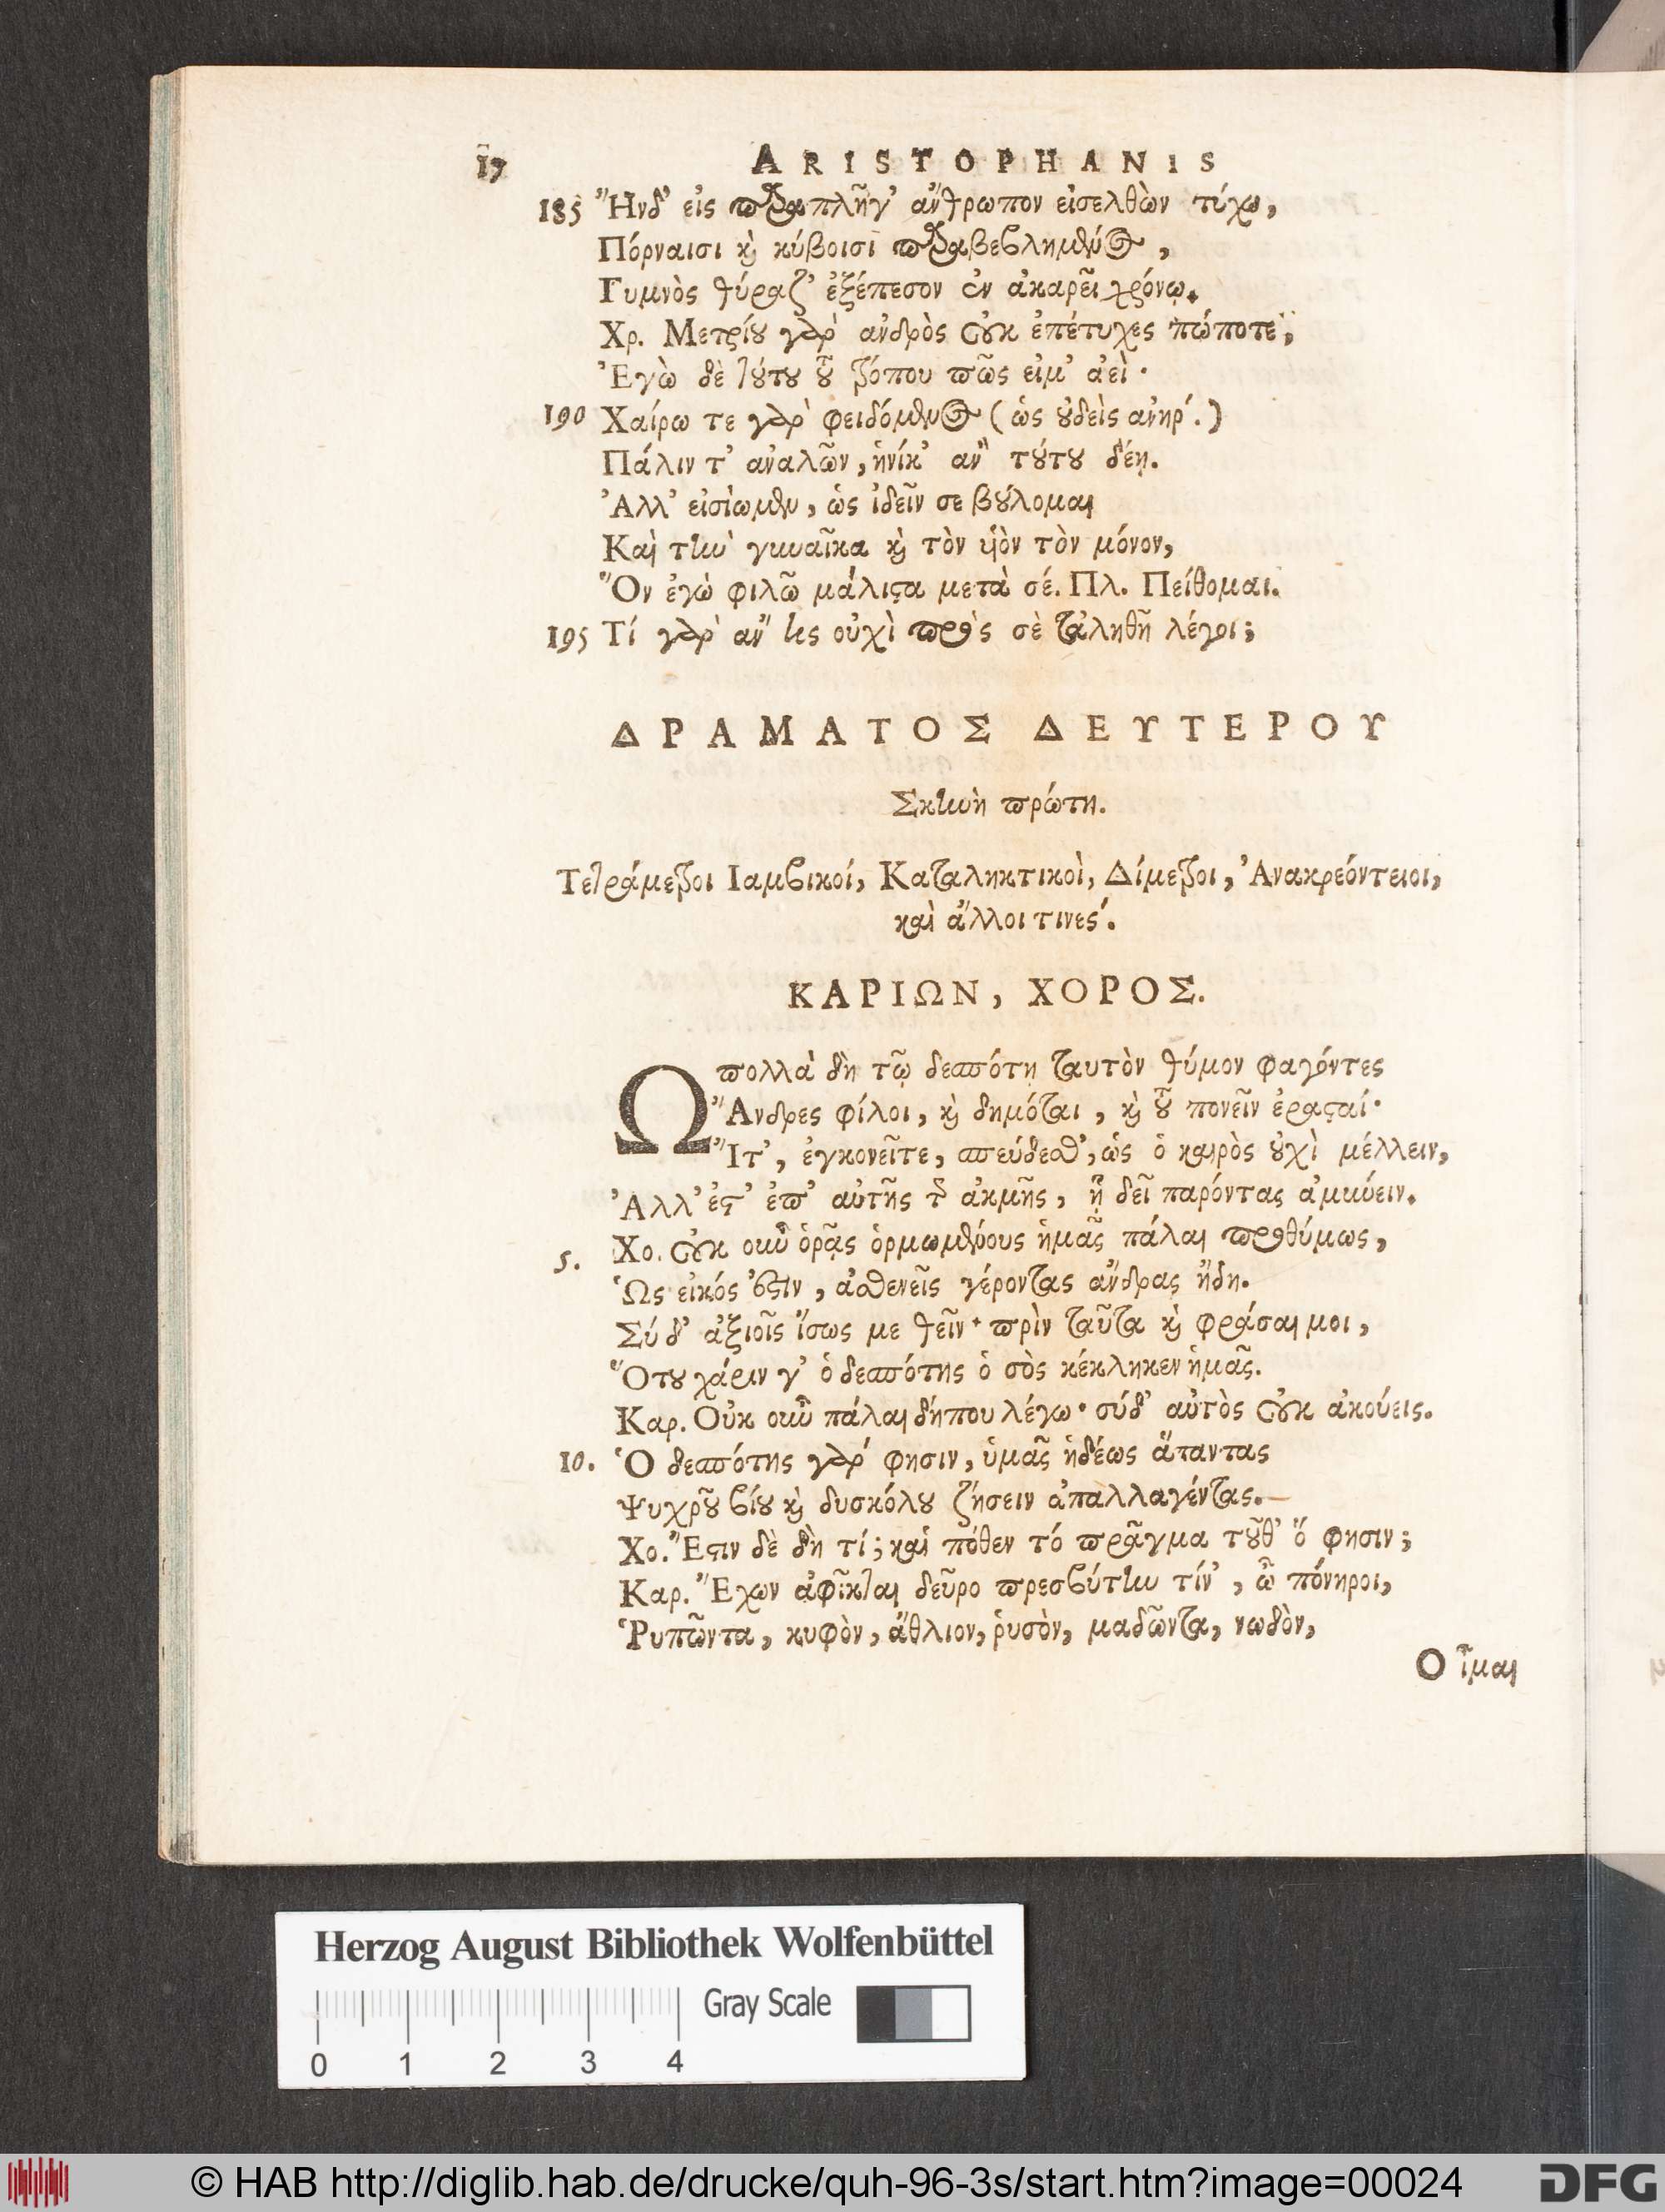 17 ARISTOPHANIS
185 Ἢνδ' εἰς παραπλῆγ' ἄνθρωπον εἰσελθὼν τύχω,
Πόρναισι καὶ κύβοισι παραβεβλημένος,
Γυμνὸς θύραζ' ἐξέπεσον ἐν ἀκαρεῖ χρόνῳ.
Χρ. Μετρίου γὰρ ἀνδρὸς οὐκ ἐπέτυχες πώποτε;
Ἐγὼ δὲ τούτου τοῦ τρόπου πῶς εἰμ' ἀεὶ·
190 Χαίρω τε γὰρ φειδόμενος (ὡς οὐδεὶς ἀνηρ.)
Πάλιν τ' ἀναλῶν, ἡνίκ' ἂν τούτου δέῃ.
Ἀλλ' εἰσίωμεν, ὡς ἰδεῖν σε βούλομαι
Καὶ τὴν γυναῖκα καὶ τὸν υἱὸν τὸν μόνον,
Ὃν ἐγὼ φιλῶ μάλιστα μετὰ σέ. Πλ. Πείθομαι.
195 Τί γὰρ ἄν τις οὐχὶ πρὸς σὲ τἀληθῆ λέγοι;
ΔΡΑΜΑΤΟΣ ΔΕΥΤΕΡΟΥ
Σκηνὴ πρώτη.
Τετράμετροι Ιαμβικοί, Καταληκτικοὶ, Δίμετροι, Ἀνακρεόντειοι,
καὶ ἄλλοι τινες.
ΚΑΡΙΩΝ, ΧΟΡΟΣ.
Ω πολλὰ δὴ τῷ δεσπότῃ ταυτὸν θύμον φαγόντες
Ἄνδρες φίλοι, καὶ δημόται, καὶ τοῦ πονεῖν ἐρασταί·
Ἴτ', ἐγκονεῖτε, σπεύδεσθ', ὡς ὁ καιρὸς οὐχὶ μέλλειν,
Ἀλλ' ἐστ' ἐπ' αὐτῆς τῆς ἀκμῆς, ᾗ δεῖ παρόντας ἀμύνειν.
5. Χο. Οὐκ οὖν ὁρᾷς ὁρμωμένους ἡμᾶς πάλαι προθύμως,
Ὡς εἰκός ἐστιν, ἀσθενεῖς γέροντας ἄνδρας ἤδη.
Σύ δ' ἀξιοῖς ἴσως με θεῖν· πρὶν ταῦτα καὶ φράσαι μοι,
Ὅτου χάριν γ' ὁ δεσπότης ὁ σὸς κέκληκεν ἡμᾶς.
Καρ. Οὐκ οὖν πάλαι δήπου λέγω· σύδ' αὐτὸς οὐκ ἀκούεις.
10. Ὁ δεσπότης γάρ φησιν, ὑμᾶς ἡδέως ἅπαντας
Ψυχροῦ βίου καὶ δυσκόλου ζήσειν ἀπαλλαγέντας.
Χο. Ἔστιν δὲ δὴ τί; καὶ πόθεν τό πρᾶγμα τοῦθ' ὅ φησιν;
Καρ. Ἔχων ἀφῖκται δεῦρο πρεσβύτην τίν', ὦ πόνηροι,
Ῥυπῶντα, κυφὸν, ἄθλιον, ῥυσὸν, μαδῶντα, νωδὸν,
Οἶμαι
Herzog August Bibliothek Wolfenbüttel
Gray Scale
0 1 2 3 4
© HAB http://diglib.hab.de/drucke/quh-96-3s/start.htm?image=00024
DFG